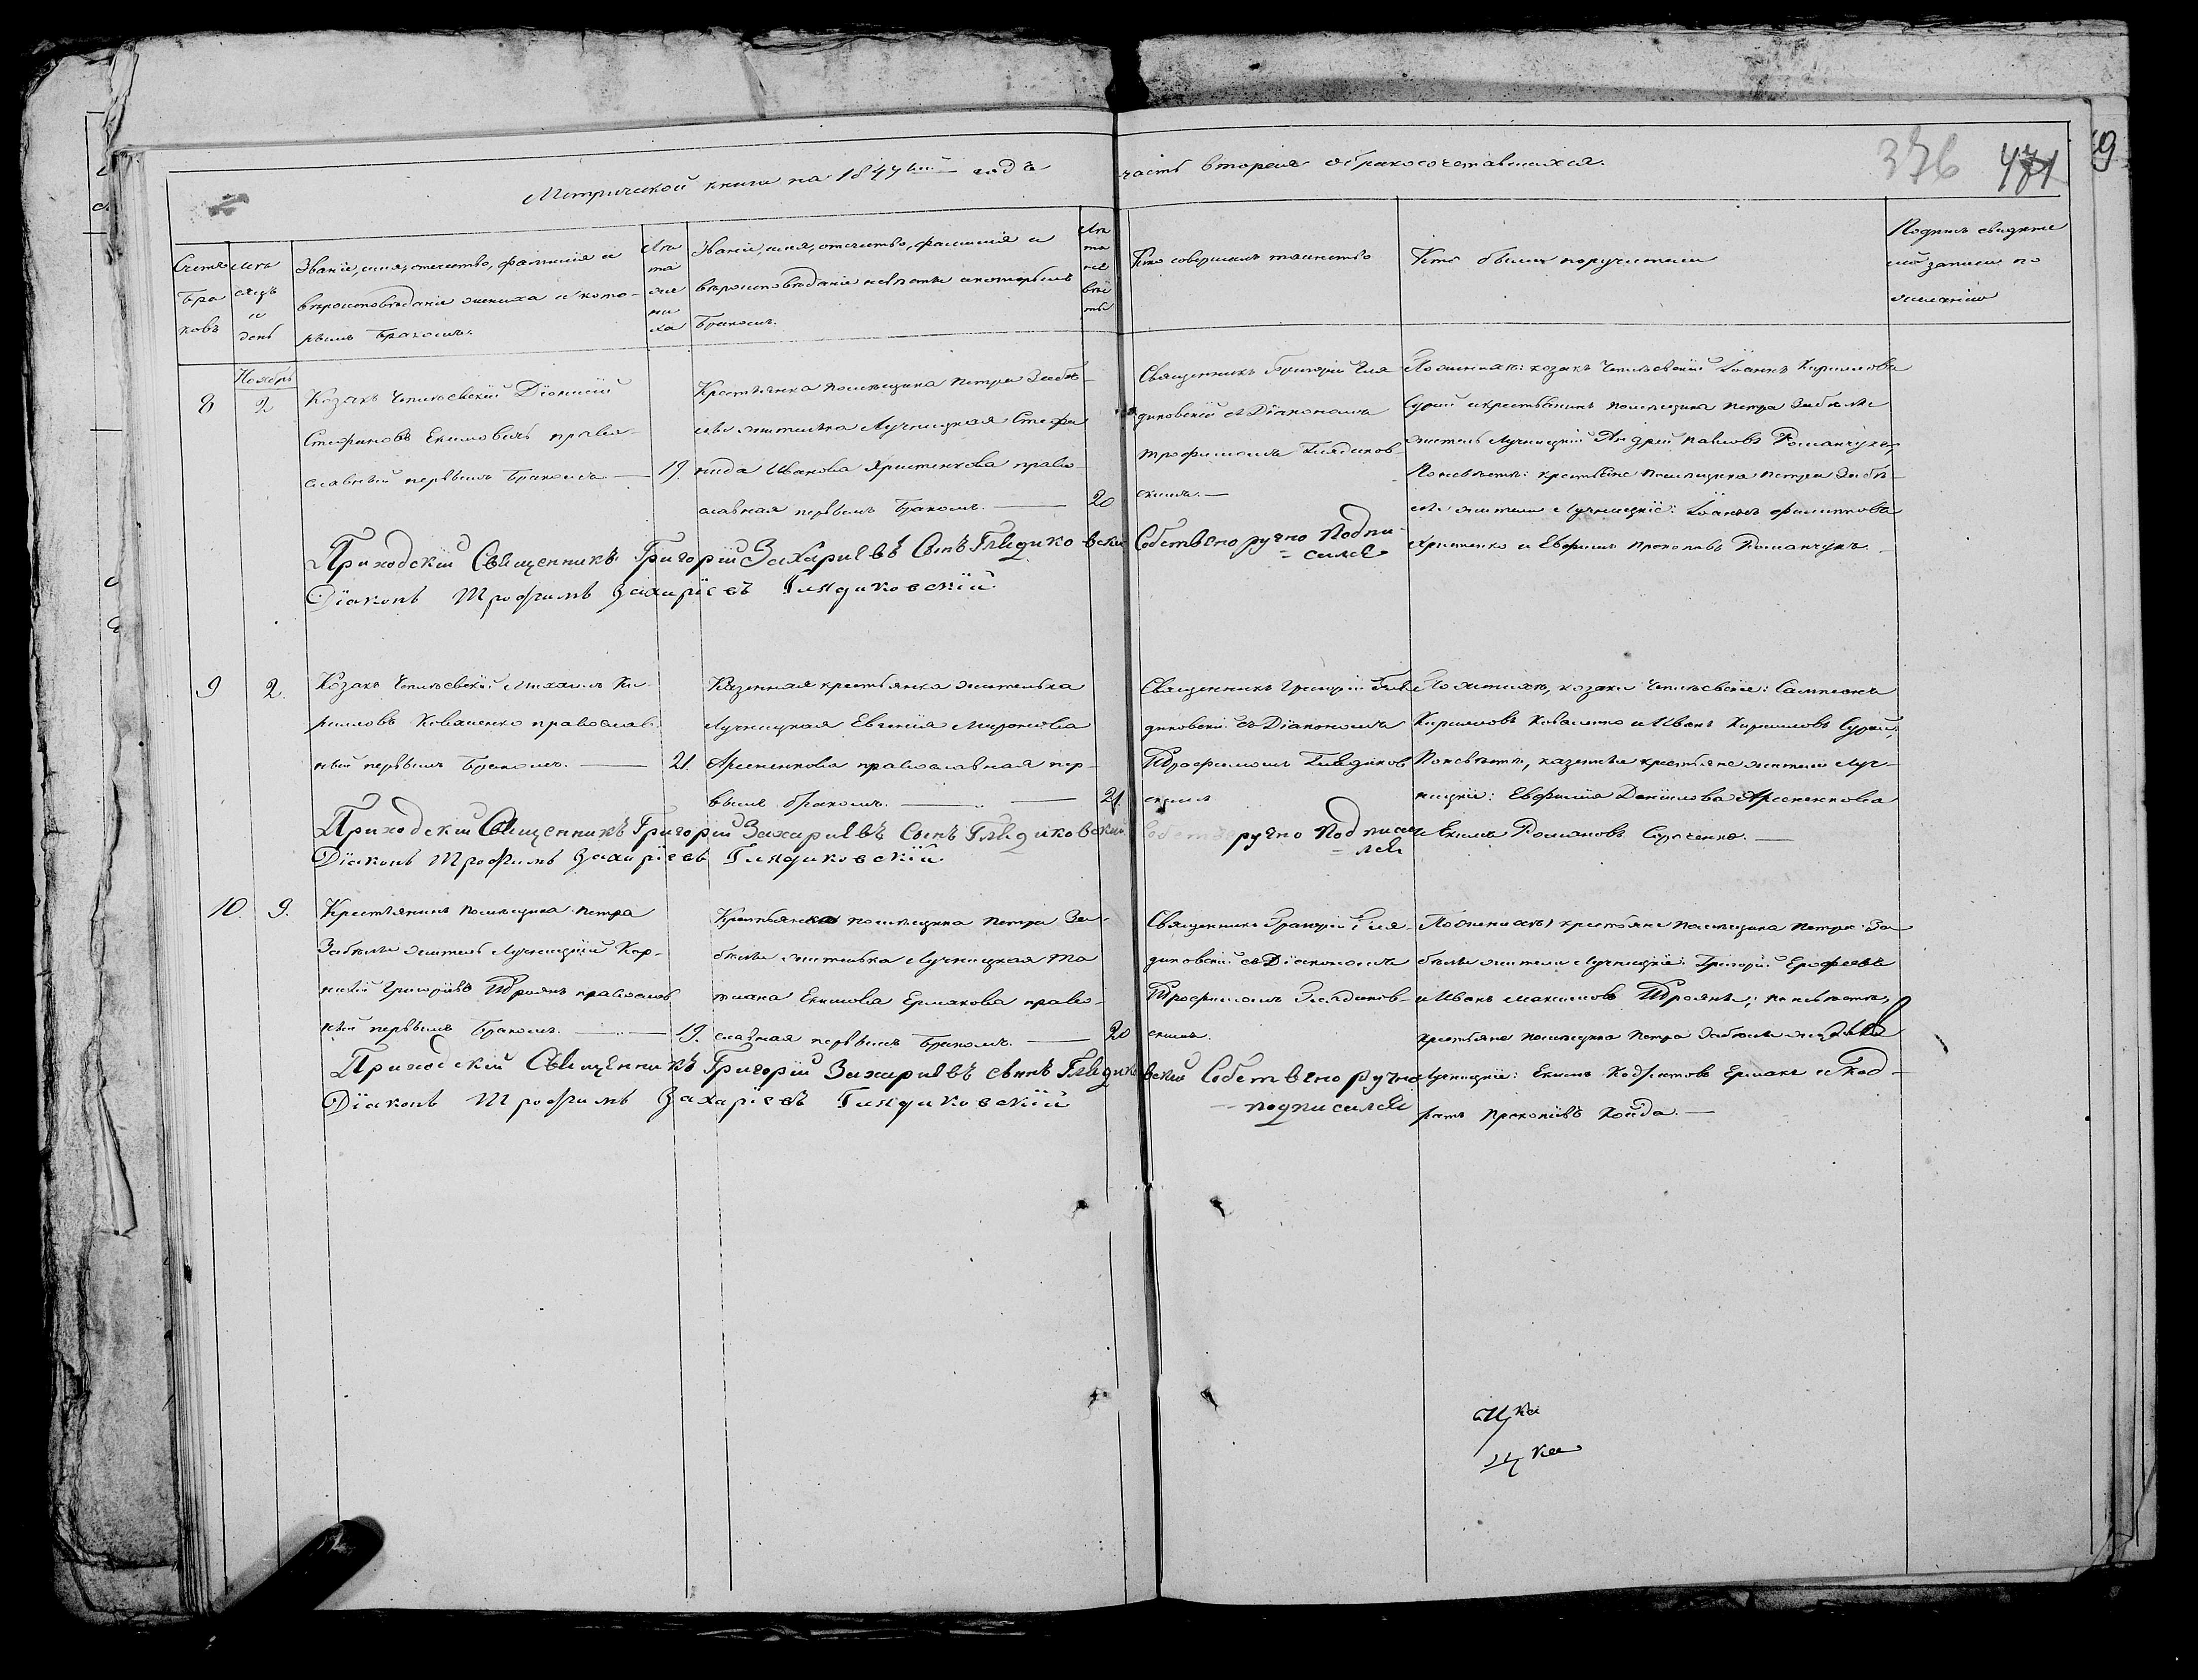 Метрической книги на 1847й годъ часть вторая о бракосочетавшихся.
376 471
Счетъ браковъ
Мѣсяцъ и день
Званіе, имя, отечество, фамилія и
вѣроисповѣданіе жениха и кото-
рымъ бракомъ.
Лѣта жениха
Званіе, имя, отечество, фамилія и
вѣроисповѣданіе невѣсты и которымъ
бракомъ.
Лѣта невѣсты
Кто совершалъ таинство
Кто были поручители
Подпись свидѣте
лей записи по
желанію
Ноябрь
8
2
Козакъ Дїонисій
Стефановъ Екимовичъ право-
славный первымъ бракомъ.
19.
Крестьянка помѣщика Петра Забѣ-
лы жителька Лучницкая Стефа
нида Иванова Христенкова право-
славная первымъ бракомъ.
20
Священникъ Григорій Гля
диковскій съ Дїакономъ
Трофимомъ Глядиков-
скимъ.
По женихѣ: козакъ Іоаннъ Кирилловъ
Сурай и крестьянинъ помѣщика Петра Забѣлы
житель Лучницкій Андрей Павловъ Романчукъ,
По невѣстѣ: крестьяне помѣщика Петра Забѣ-
лы жители Лучницкіе: Іоаннъ Филиповъ
Христенко и Евфимъ Прокоповъ Романчукъ.
Приходскій Священникъ Григорїй Захариевъ Сынъ Глядиковскій Собствено ручно Подпи-
сался
Дїаконъ Трофимъ Захарїевъ Глядиковскїй
9
2.
Козакъ Михаилъ Ки-
рилловъ Коваленко православ-
ный первымъ бракомъ.
21.
Казенная крестьянка жителька
Лучницкая Евгенія Миронова
Арсененкова православная пер-
вымъ бракомъ.
21.
Священникъ Григорій Гля
диковскій съ Дїакономъ
Трофимомъ Глядиков
скимъ
По женихѣ, козаки: Сампсонъ
Кирилловъ Коваленко и Иванъ Кирилловъ Сурай,
По невѣстѣ, казенные крестьяне жители Луч-
ницкіе: Евфимія Данїилова Арсененкова
и Екимъ Романовъ
Приходскій Священникъ Григорїй Захариевъ Сынъ Глядиковскій ручно Подписа
лся
Дїаконъ Трофимъ Захарїевъ Глядиковскїй
10.
9.
Крестьянинъ помѣщика Петра
Забѣлы житель Лучницкій Кор-
нилій Григорїевъ Троянъ православ
ный первымъ бракомъ.
19.
Крестьянка помѣщика Петра За-
бѣлы жителька Лучницкая Та
тиана Екимова Ермакова право-
славная первымъ бракомъ.
20
Священникъ Григорій Гля-
диковскій съ Дїакономъ
Трофимомъ Глядиков-
скимъ.
По женихѣ, крестьяне помѣщика Петра За
бѣлы жители Лучницкіе: Григорій Ерофеевъ
и Иванъ Максимовъ Трояны; по невѣстѣ,
крестьяне помѣщика Петра Забѣлы
Лучницкіе: Екимъ Ермакъ и Код-
ратъ Прокопїевъ Койда.
Приходскій Священникъ Григорїй Захариевъ сынъ Глядиковскій Собствено ручно
подписался
Дїаконъ Трофимъ Захарїевъ Глядиковскїй